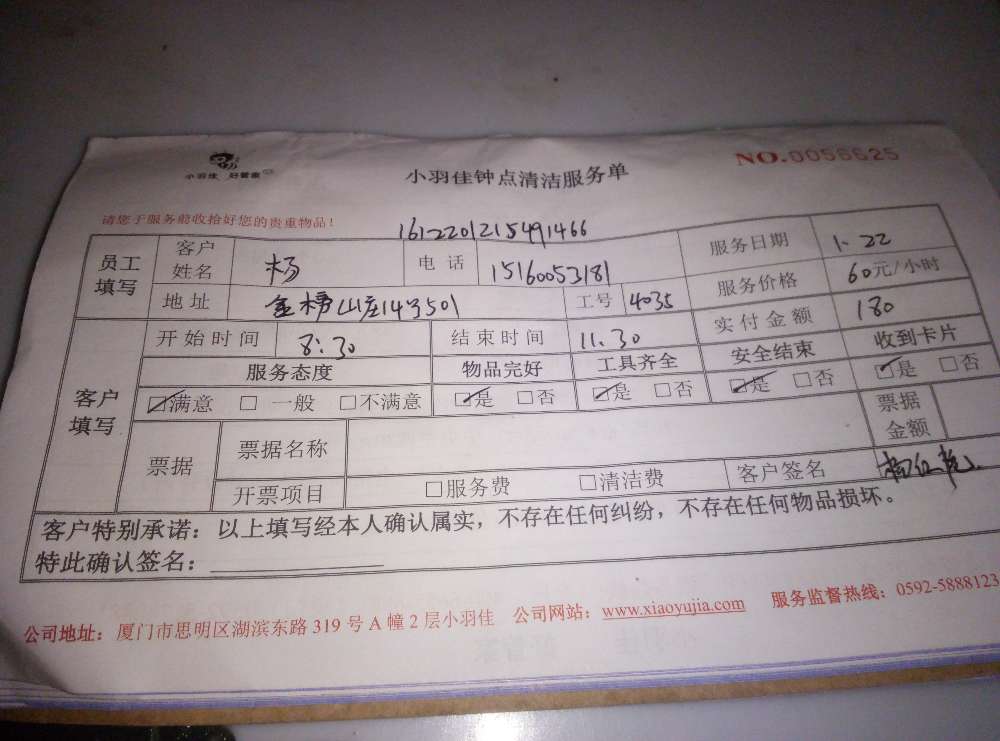 小羽佳 好管家
小羽佳钟点清洁服务单
NO.0056625
请您于服务前收拾好您的贵重物品！
1612201215491466
员工填写 客户姓名 杨 电话 15160053181 服务日期 1.22
地址 金榜山庄143501 工号 4035 服务价格 60元/小时
客户填写 开始时间 8:30 结束时间 11.30 实付金额 180
服务态度 物品完好 工具齐全 安全结束 收到卡片
☑满意 □一般 □不满意 ☑是 □否 ☑是 □否 ☑是 □否 ☑是 □否
票据 票据名称 票据金额
开票项目 □服务费 □清洁费 客户签名
客户特别承诺：以上填写经本人确认属实，不存在任何纠纷，不存在任何物品损坏。
特此确认签名：
公司地址：厦门市思明区湖滨东路 319 号 A 幢 2 层小羽佳 公司网站：www.xiaoyujia.com 服务监督热线：0592-5888123